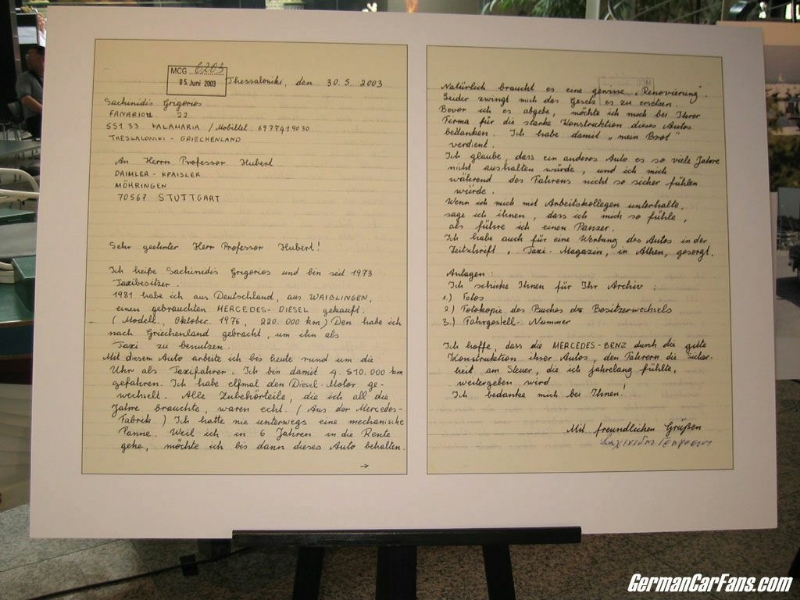 MCG 6203
05. Juni 2003
Thessaloniki, den 30.5.2003
Sachinidis Grigorios
FANARION 22
551 33 KALAMARIA / Mobiltel
THESSALONIKI - GRIECHENLAND
An Herrn Professor Hubert
DAIMLER - KRAISLER
MÖHRINGEN
70567 STUTTGART
Sehr geehrter Herr Professor Hubert!
Ich heiße Sachinidis Grigorios und bin seit 1973
Taxibesitzer.
1981 habe ich aus Deutschland, aus WAIBLINGEN,
einen gebrauchten MERCEDES-DIESEL gekauft.
(Modell, Oktober 1976, 220.000 km) Den habe ich
nach Griechenland gebracht, um ihn als
Taxi zu benutzen.
Mit diesem Auto arbeite ich bis heute rund um die
Uhr als Taxifahrer. Ich bin damit 4.510.000 km
gefahren. Ich habe elfmal den Diesel-Motor ge-
wechselt. Alle Zubehörteile, die ich all die
Jahre brauchte, waren echt. (Aus der Mercedes-
Fabrik) Ich hatte nie unterwegs eine mechanische
Panne. Weil ich in 6 Jahren in die Rente
gehe, möchte ich bis dann dieses Auto behalten.
→
Natürlich braucht es eine gewisse „Renovierung".
Leider zwingt mich das Gesetz es zu ersetzen.
Bevor ich es abgebe, möchte ich mich bei Ihrer
Firma für die starke Konstruktion dieses Autos
bedanken. Ich habe damit „mein Brot"
verdient.
Ich glaube, dass ein anderes Auto es so viele Jahre
nicht aushalten würde, und ich mich
während des Fahrens nicht so sicher fühlen
würde.
Wenn ich mich mit Arbeitskollegen unterhalte,
sage ich ihnen, dass ich mich so fühle,
als führe ich einen Panzer.
Ich habe auch für eine Werbung des Autos in der
Zeitschrift, Taxi-Magazin, in Athen, gesorgt.
Anlagen:
Ich schicke Ihnen für Ihr Archiv:
1.) Fotos
2.) Fotokopie des Buches des Besitzerwechsels
3.) Fahrgestell-Nummer
Ich hoffe, dass die MERCEDES-BENZ durch die gute
Konstruktion ihrer Autos, den Fahrern die Sicher-
heit am Steuer, die ich jahrelang fühlte,
weitergeben wird.
Ich bedanke mich bei Ihnen!
Mit freundlichen Grüßen
GermanCarFans.com